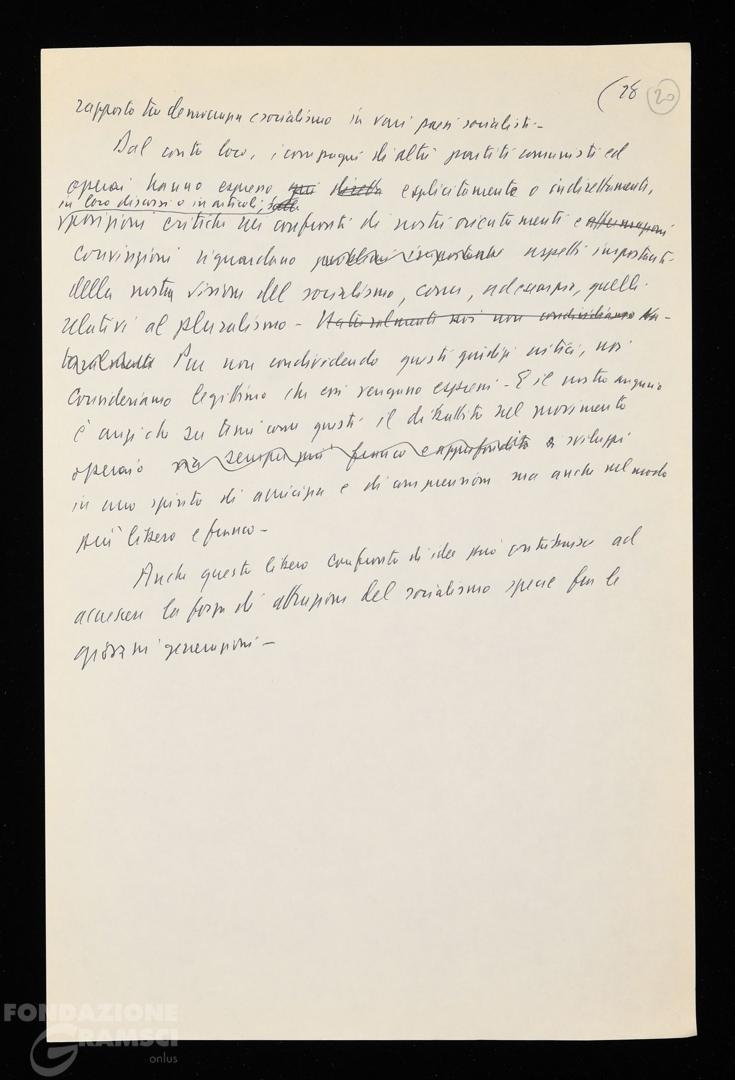 (28 20
rapporto tra democrazia e socialismo in vari paesi socialisti -
Dal canto loro, i compagni di altri partiti comunisti ed
operai hanno espresso più diretta esplicitamente o indirettamente,
in loro discorsi o in articoli,
posizioni critiche nei confronti di nostri orientamenti e affermazioni
convinzioni riguardano problemi importante aspetti importanti
della nostra visione del socialismo, come, ad esempio, quelli
relativi al pluralismo - Naturalmente noi non condividiamo
Pur non condividendo questi giudizi critici, noi
consideriamo legittimo che essi vengano espressi - E il nostro augurio
è anzi che su temi come questi il dibattito nel movimento
operaio sia sempre più franco e approfondito si sviluppi
in uno spirito di amicizia e di comprensione ma anche nel modo
più libero e franco -
Anche questo libero confronto di idee può contribuire ad
accrescere la forza di attrazione del socialismo specie fra le
giovani generazioni -
FONDAZIONE
GRAMSCI
onlus